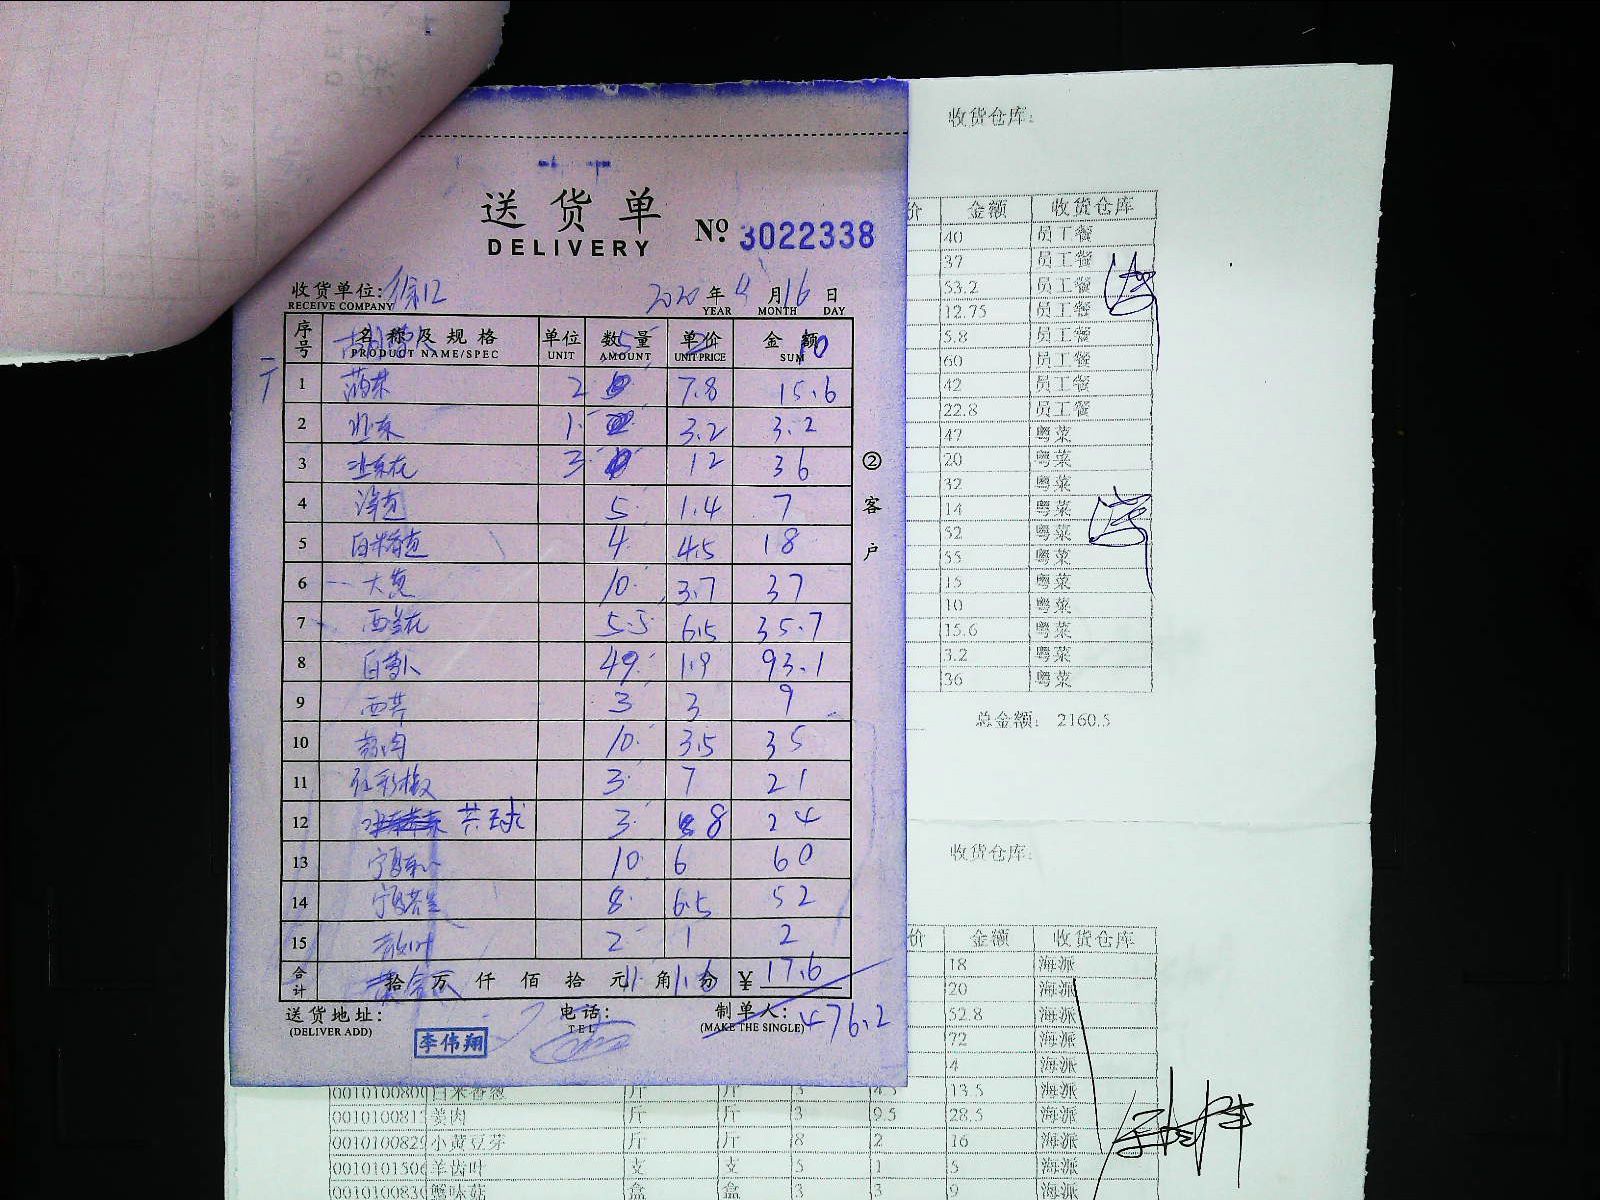 送货单
DELIVERY
№ 3022338
收货单位: 徐江
RECEIVE COMPANY
2020 年 4 月 16 日
YEAR MONTH DAY
序号 名称及规格 单位 数量 单价 金额
PRODUCT NAME/SPEC UNIT AMOUNT UNIT PRICE SUM
5 2 10
1 2 7.8 15.6
2 1 3.2 3.2
3 3 12 36
4 洋葱 5 1.4 7
5 白米香葱 4 4.5 18
6 大葱 10 3.7 37
7 西兰花 5.5 6.5 35.7
8 白萝卜 49 1.9 93.1
9 西芹 3 3 9
10 姜肉 10 3.5 35
11 红彩椒 3 7 21
12 3 8 24
13 10 6 60
14 8 6.5 52
15 2 1 2
合计 拾 万 仟 佰 拾 元 角 分 ¥ 17.6
476.2
②客户
送货地址:
(DELIVER ADD)
电话:
TEL
制单人:
(MAKE THE SINGLE)
李伟翔
收货仓库:
价 金额 收货仓库
40 员工餐
37 员工餐
53.2 员工餐
12.75 员工餐
5.8 员工餐
60 员工餐
42 员工餐
22.8 员工餐
47 粤菜
20 粤菜
32 粤菜
14 粤菜
52 粤菜
55 粤菜
15 粤菜
10 粤菜
15.6 粤菜
3.2 粤菜
36 粤菜
总金额: 2160.5
收货仓库:
价 金额 收货仓库
18 海派
20 海派
52.8 海派
72 海派
4 海派
0010100800 白米香葱 斤 斤 3 4.5 13.5 海派
001010081 姜肉 斤 斤 3 9.5 28.5 海派
001010082 小黄豆芽 斤 斤 8 2 16 海派
001010150 羊齿叶 支 支 5 1 5 海派
001010083 蟹味菇 盒 盒 3 3 9 海派